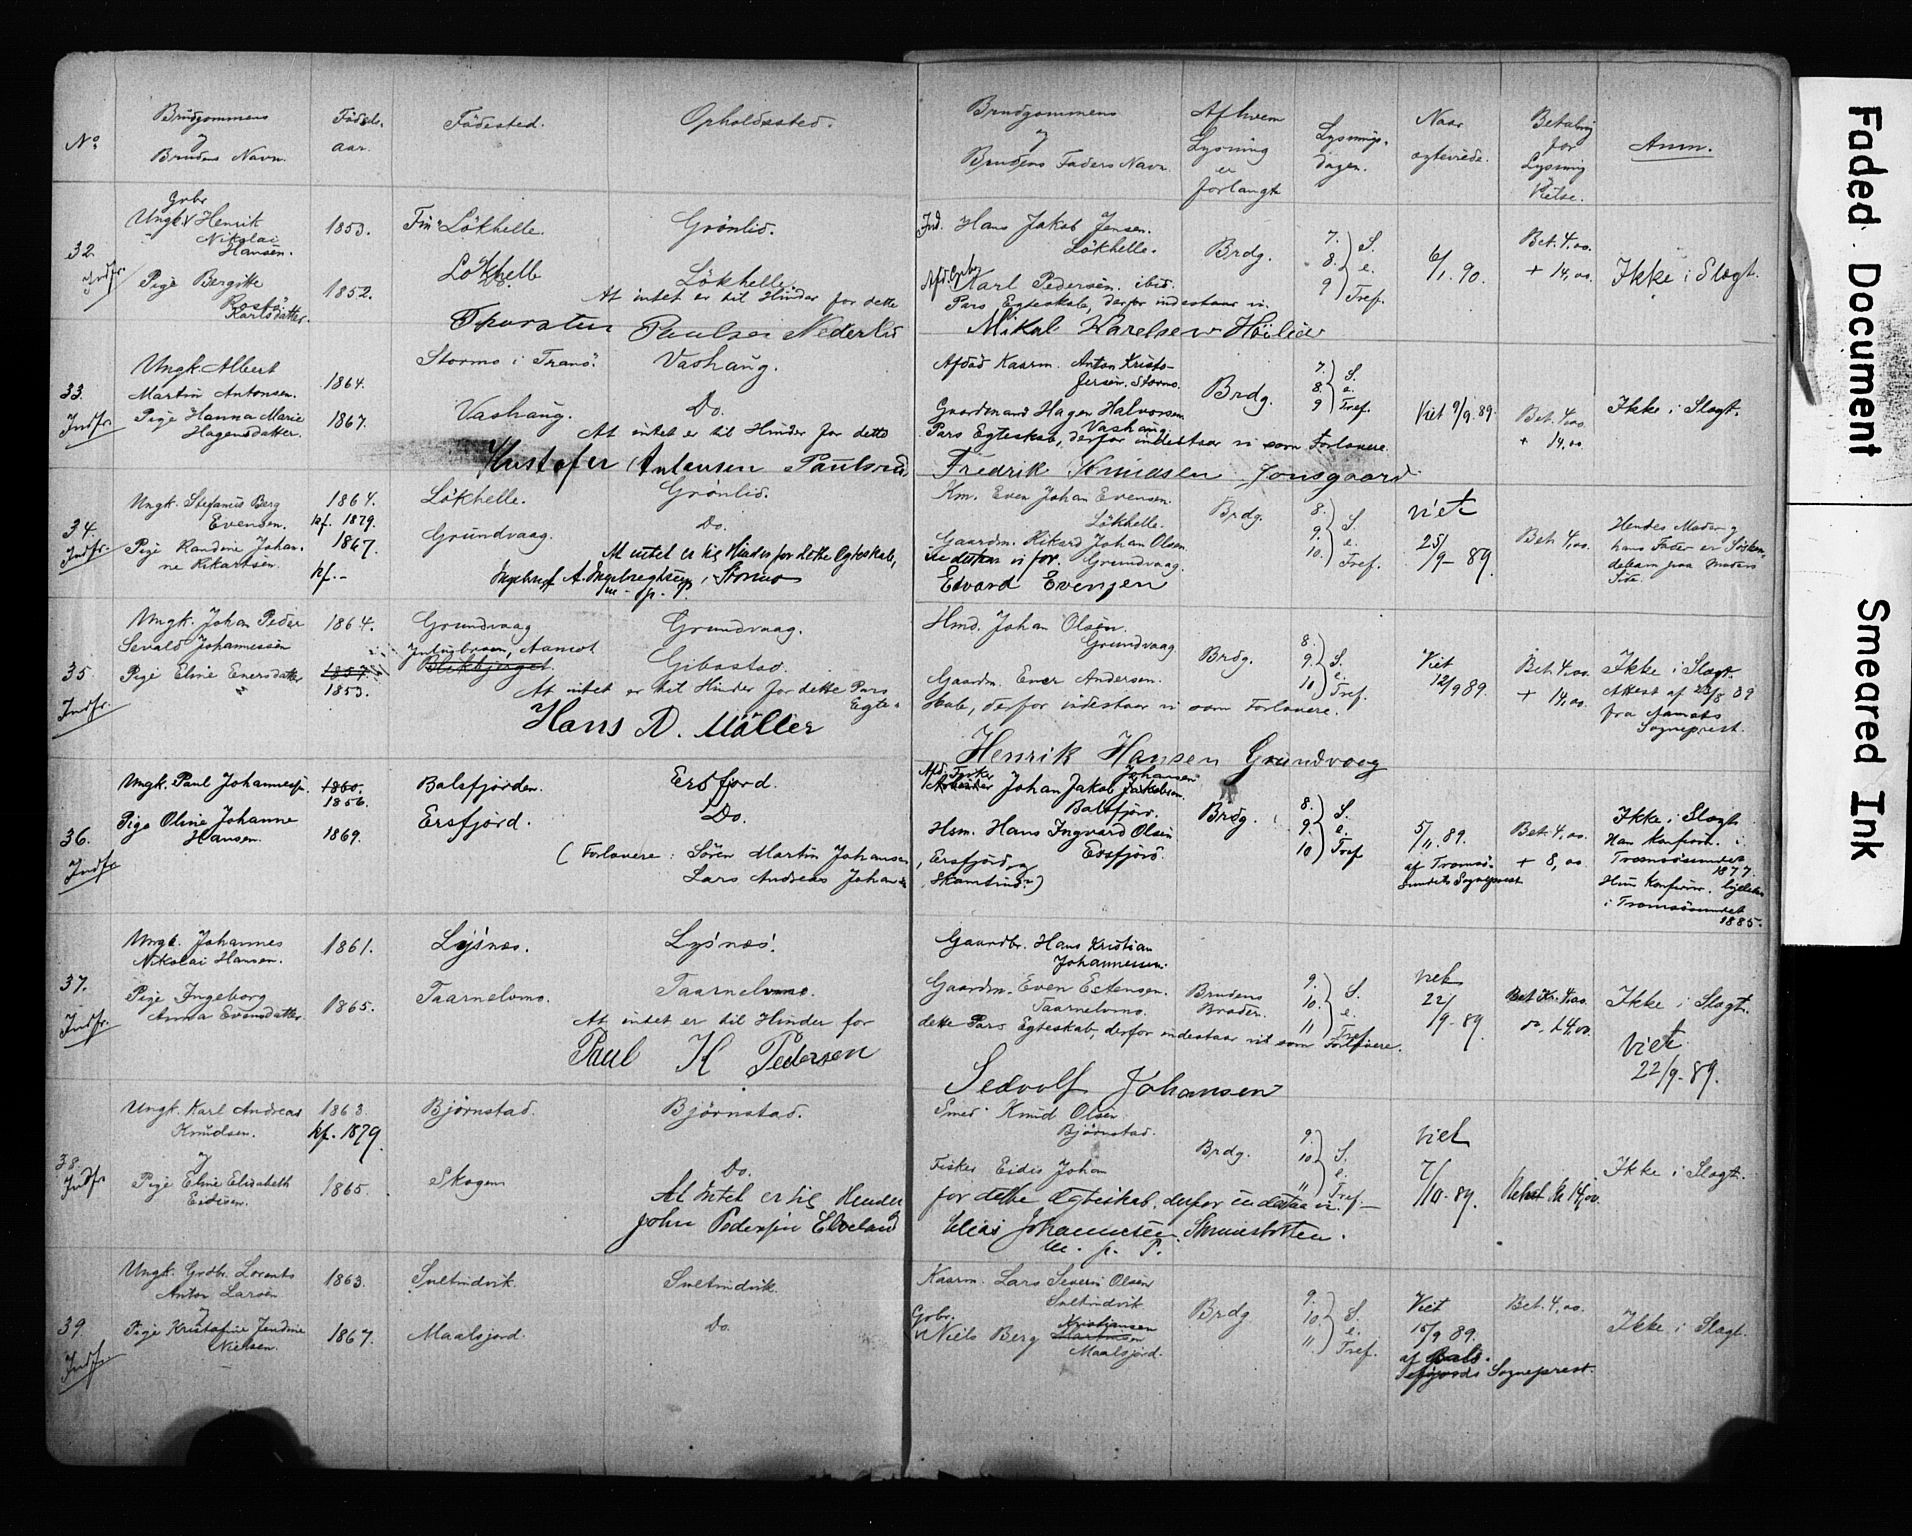 No
Brudgommens
og
Brudens Navn.
Fødsels-
aar.
Fødested.
Opholdssted.
Brudgommens
og
Brudens Faders Navn.
Af hvem
Lysning
er
forlangt
Lysnings-
dagen.
Naar
ægteviede.
Betaling
for
Lysning
Vielse.
Anm.
32.
Indfr.
Gbr
Ungk. Henrik
Nikolai
Hansen.
1853.
Løkhelle.
Grønlid.
Ind. Hans Jakob Jensen.
Løkhelle.
Brdg.
7.
8.
9
S.
e.
Tref.
6/1. 90.
Bet. 4,00.
+ 14,00.
Ikke i Slægt.
Pige Bergitte
Karlsdatter.
1852.
Løkhelle
Løkhelle.
Karl Pedersen. ibid.
At intet er til Hinder for dette
Pars Egteskab, derfor indestaar vi.
Thorsten Paulsen Nederlid
Mikal Karelsen Høilid
33.
Indfr.
Ungk. Albert
Martin Antonsen.
1864.
Stormo i Tranø.
Vashaug.
Afdød Kaarm. Anton Kristo-
fersen. Stormo.
Brdg.
7.
8.
9
S.
e.
Tref.
Viet 9/9 89.
Bet. 4,00.
+ 14,00
Ikke i Slægt.
Pige Hanna Marie
Hagensdatter.
1867.
Vashaug.
Do.
Gaardmand Hagen Halvorsen
Vashaug.
At intet er til Hinder for dette
Pars Egteskab, derfor indestaar vi som Forlovere.
Kristofer Antonsen
Fredrik Jonsgaard
34.
Indfr.
Ungk. Stefanus Berg
Evensen.
1864.
kf. 1879.
Løkhelle.
Grønlid.
Km. Even Johan Evensen.
Løkhelle.
Brdg.
8.
9.
10.
S.
e.
Tref.
viet
25/9- 89.
Bet. 4,00.
Hendes Moder og
hans Fader er Søsken-
debarn paa Moders
Side.
Pige Randine Johan-
ne Rikartsen.
1867.
kf.-
Grundvaag.
Do.
Gaardm. Rikard Johan Olsen.
Grundvaag.
At intet er til Hinder for dette Egteskab,
indestaar vi for.
Ingebrigt A. Ingebregtsen, Stormo
m. p. P.
Edvard Evensen
35.
Indfr.
Ungk. Johan Peder
Sevald Johannessen
1864.
Grundvaag
Grundvaag.
Hmd. Johan Olsen.
Grundvaag
Brdg.
8.
9.
10
S.
e.
Tref.
Viet
12/9 89.
Bet. 4,00.
+ 14,00.
Ikke i Slægt.
Attest af 23/8 89
fra Aamots
Sogneprest.
Pige Eline Enersdatter
1857.
1853.
Aamot
Blekbjerget.
Gibostad.
Gaardm. Ener Andersen.
At intet er til Hinder for dette Pars
Egte-
skab, derfor indestaar vi som Forlovere.
Hans A. Møller
Henrik Hansen Grundvaag
36.
Indfr.
Ungk. Paul Johannessen
1860.
1856.
Balsfjorden.
Ersfjord.
Afd. Fisker
Johan Jakob Johansen
Jakobsen.
Balsfjord.
Brdg.
8.
9.
10
S.
e.
Tref
5/11. 89.
af Tromsø-
sundets Sogneprest
Bet. 4,00.
+ 8,00
Ikke i Slægt.
Han Konfirm. i
Tromsøsundet
1877.
Hun Konfirm. ligeledes
i Tromsøsundet
1885.
Pige Oline Johanne
Hansen.
1869.
Ersfjord.
Do.
Hsm. Hans Ingvard Olsen
Ersfjord.
(Forlovere: Søren Martin Johansen
, Ersfjord, og
Lars Andreas Johansen
37.
Indfr.
Ungk. Johannes
Nikolai Hansen.
1861.
Lysnæs.
Lysnæs.
Gaardbr. Hans Kristian
Johannessen.
Brudens
Broder.
9.
10.
11
S.
e.
Tref.
viet
22/9- 89
Bet Kr. 4,00.
14,00.
Ikke i Slægt.
Viet
22/9- 89.
Pige Ingeborg
Anna Evensdatter
1865.
Taarnelvmo.
Taarnelvmo.
Gaardm. Even Estensen.
Taarnelvmo.
At intet er til Hinder for
dette Pars Egteskab, derfor indestaar vi som Forlovere.
Paul H Pedersen
Sedvolf Johansen
38.
Indfr
Ungk. Karl Andreas
Knudsen.
og
1863.
kf. 1879.
Bjørnstad.
Bjørnstad.
Smed Knud Olsen
Bjørnstad.
Brdg.
9.
10.
11
S.
e.
Tref.
viet
7/10- 89.
14,00.
Ikke i Slægt.
Pige Eline Elisabeth
Eidisen.
1865.
Skogen
Do.
Fisker Eidis Johan
At intet er til Hinder
for dette Egteskab, derfor indestaa vi.
John Pedersen Elveland
Elias Johannesen,
m. p. P.
39.
Indfr.
Ungk. Grdbr. Lorents
Anton Larsen
og
1863.
Sultindvik.
Sultindvik.
Kaarm. Lars Severin Olsen
Sultindvik.
Brdg
9.
10.
11.
S.
e.
Tref.
Viet
15/9 89.
af Bals-
fjords Sogneprest.
Bet. 4,00.
Ikke i Slægt.
Pige Kristofine Jendine
Nielsen.
1867.
Maalsjord.
Do.
Gbr.
Niels Berg Kristiansen
Maalsjord.
Faded Document
Smeared Ink